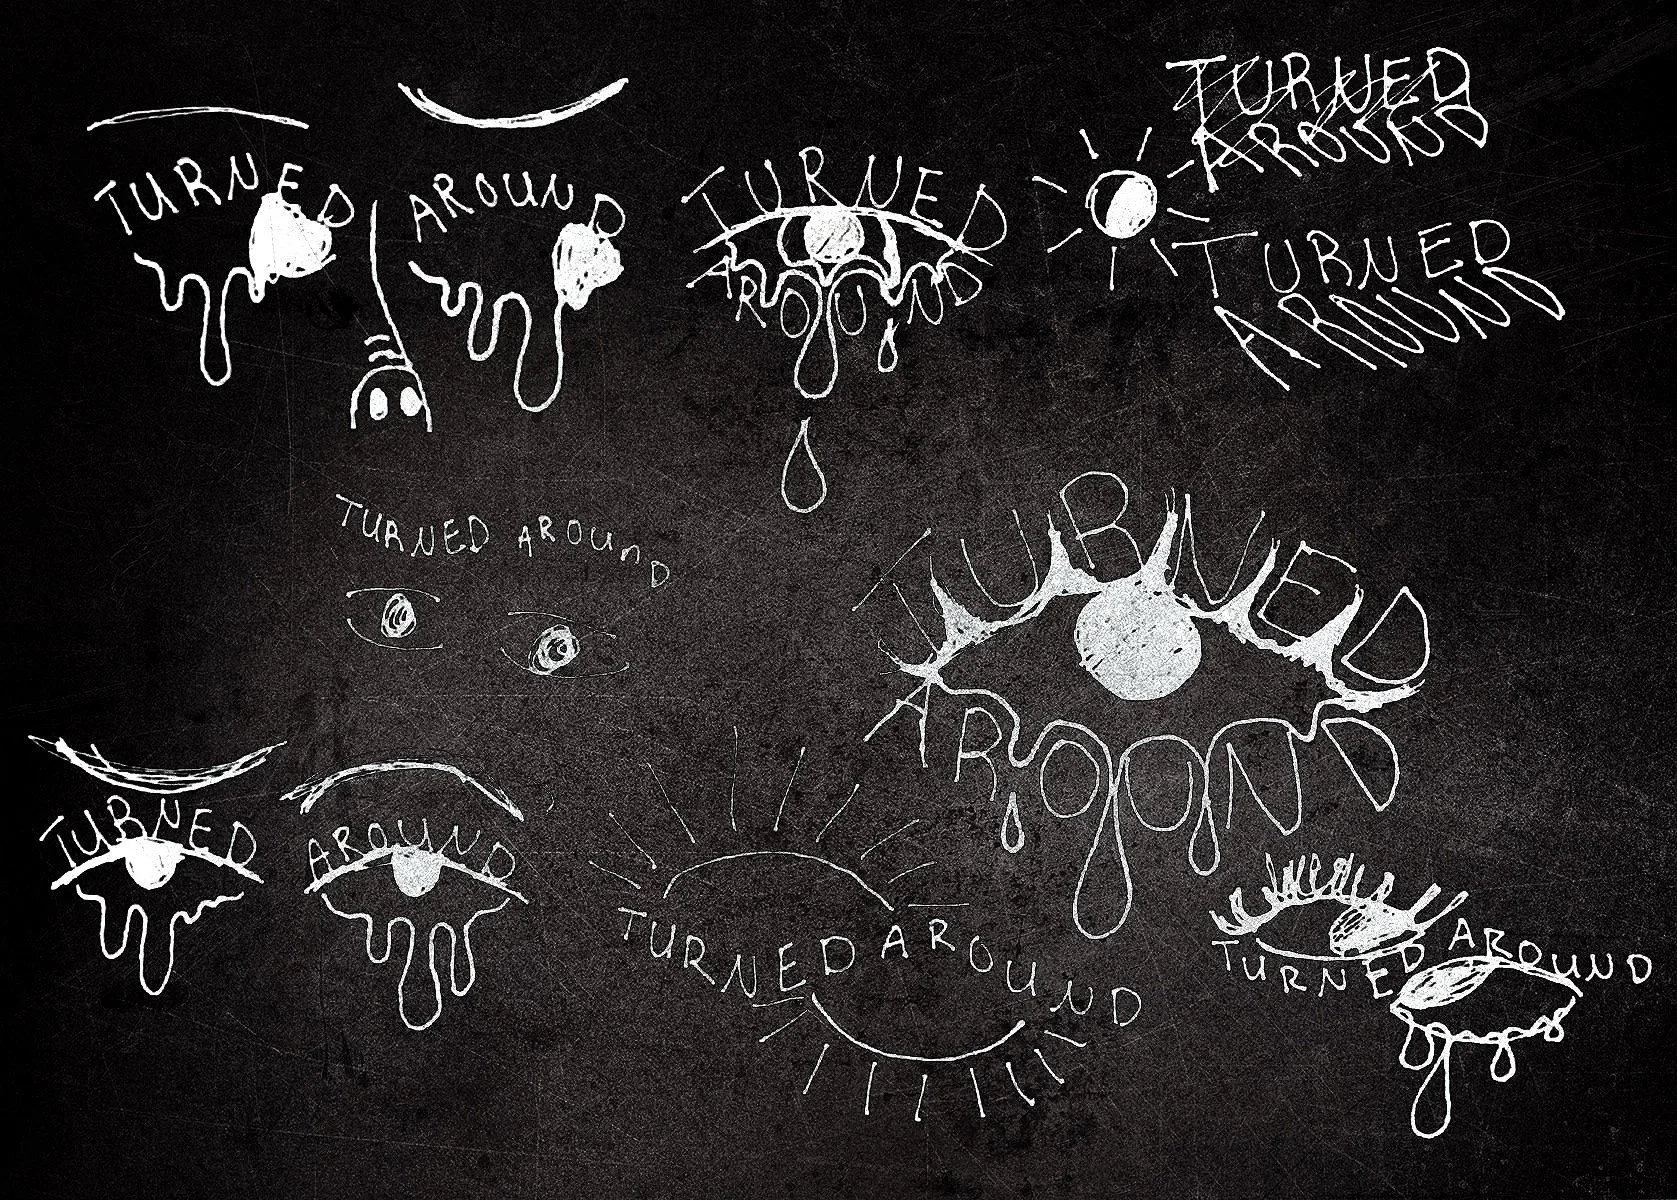 TURNED AROUND
TURNED
AROUND
TURNED
AROUND
TURNED
AROUND
TURNED AROUND
TURNED
AROUND
TURNED AROUND
TURNED AROUND
TURNED AROUND